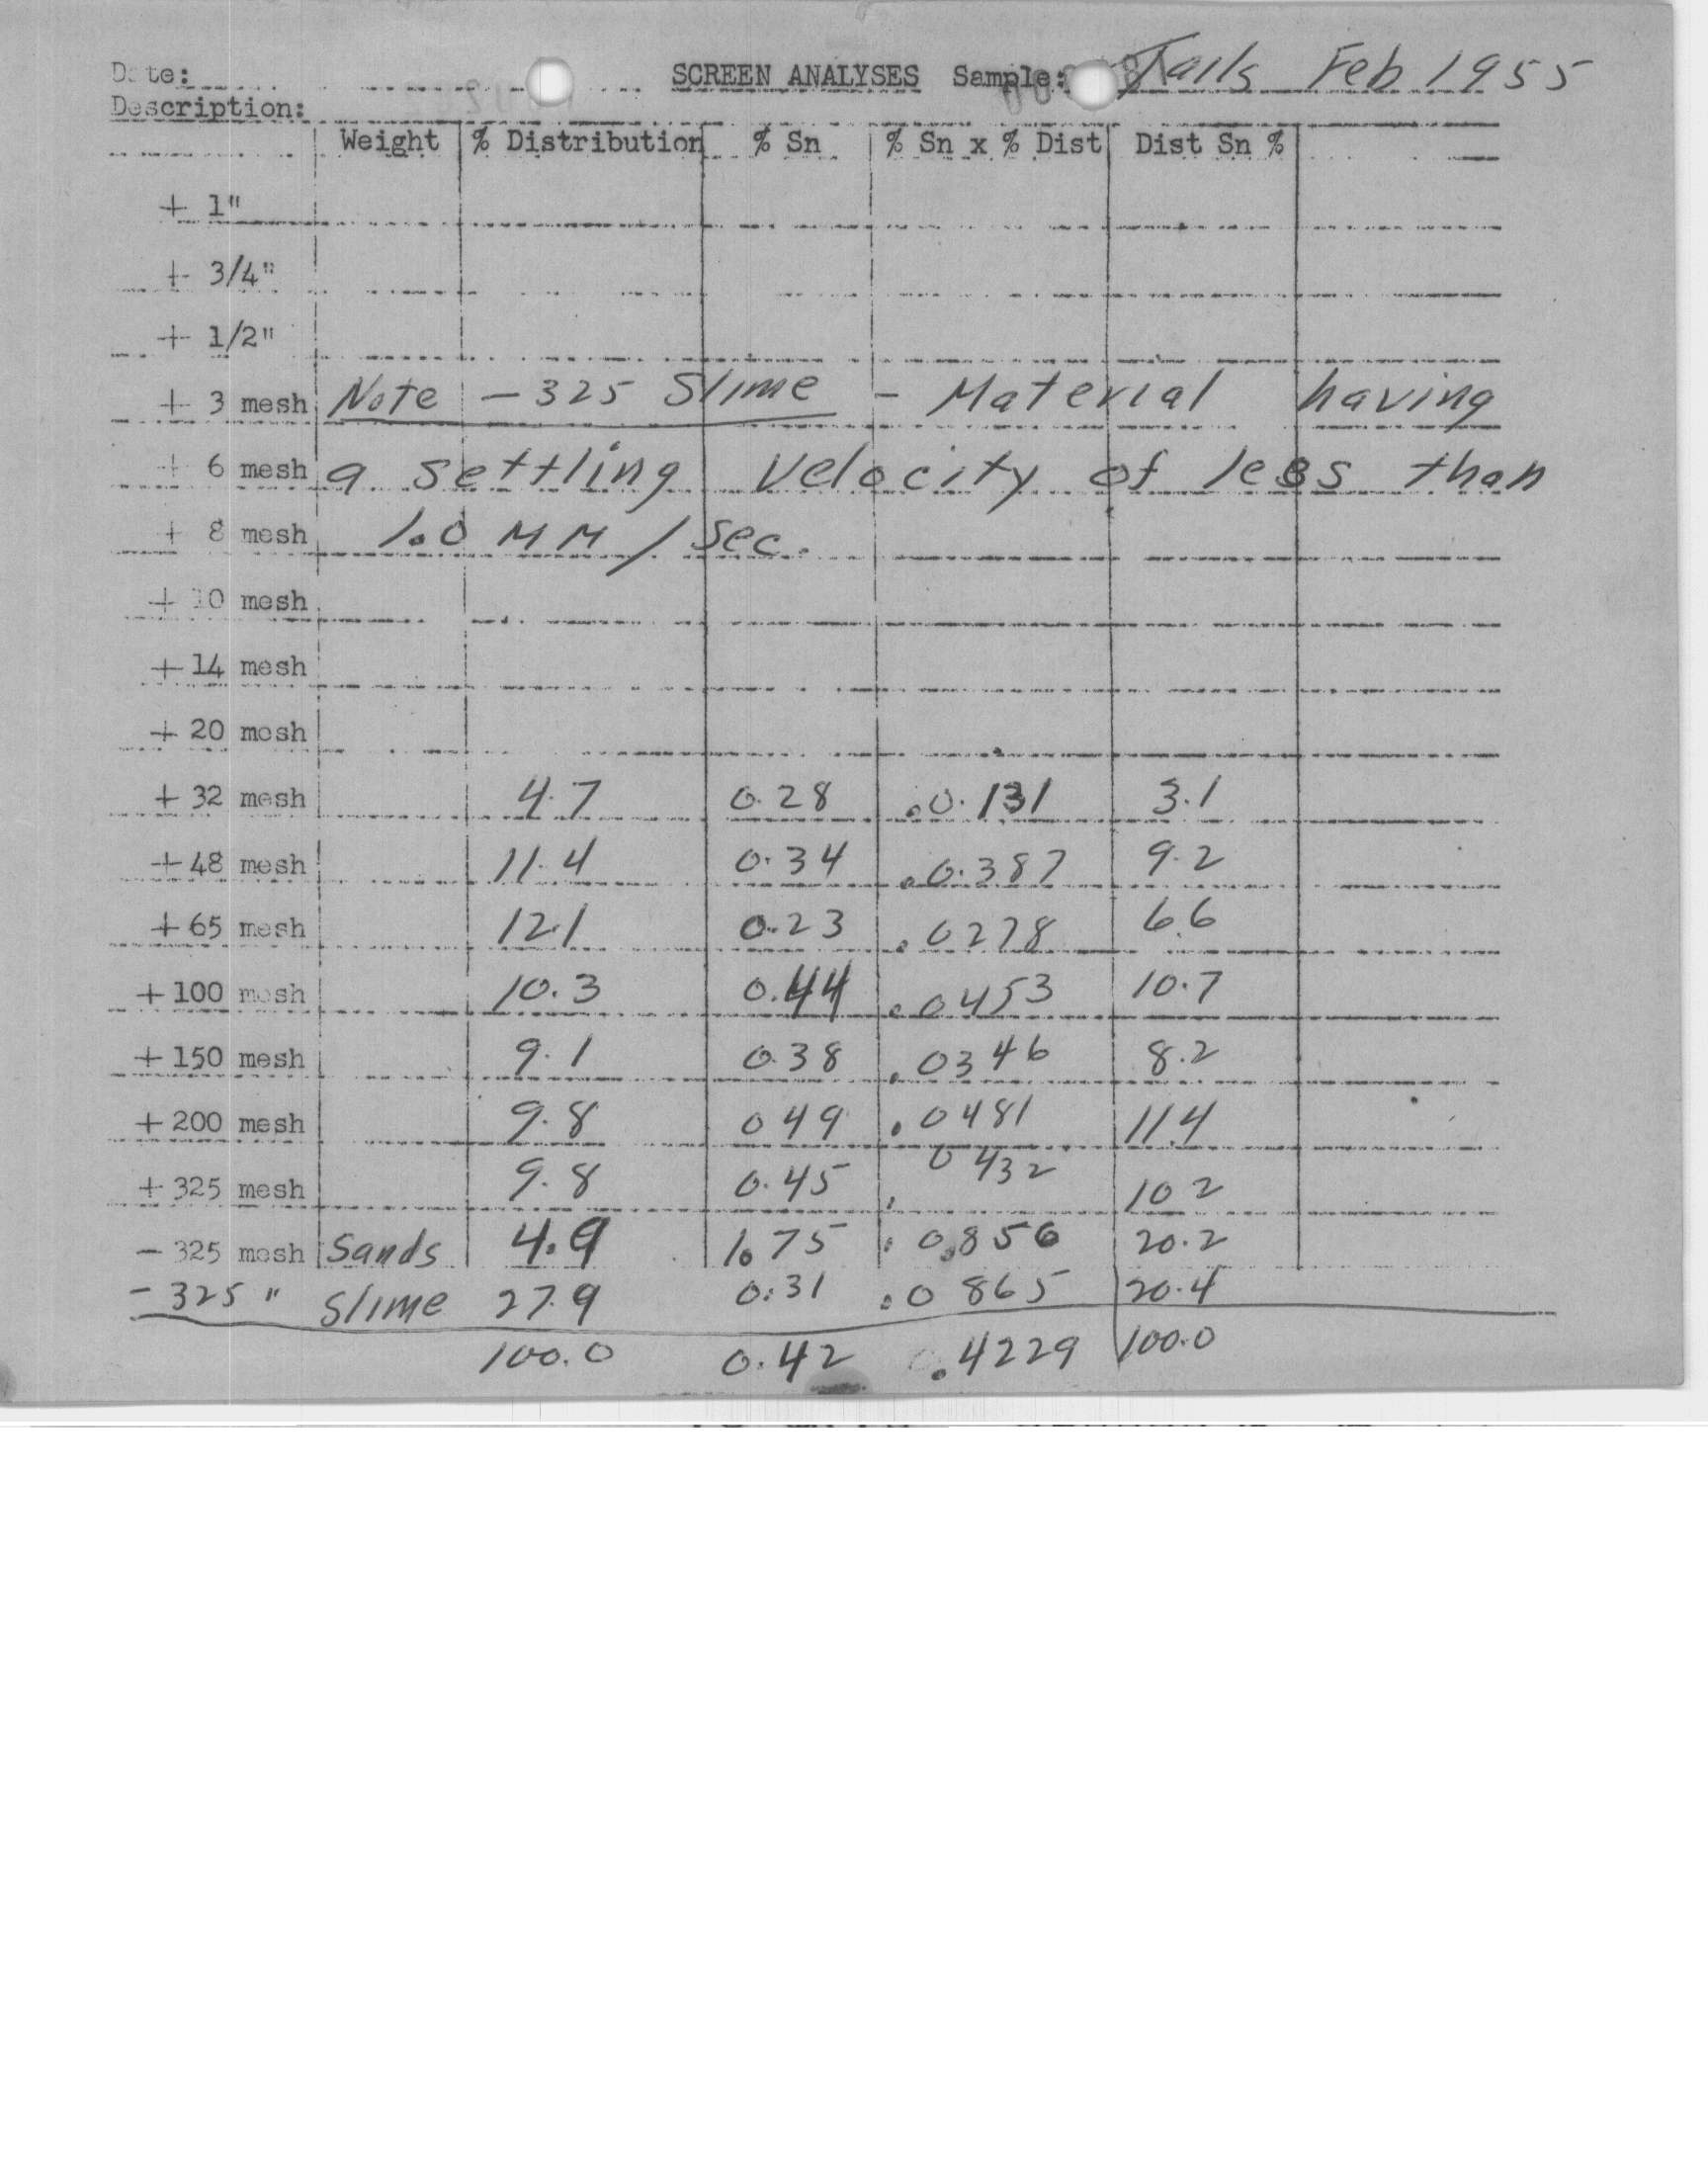 Date: SCREEN ANALYSES Sample: Tails Feb 1955
Description:
Weight % Distribution % Sn % Sn x % Dist Dist Sn %
+ 1"
+ 3/4"
+ 1/2"
+ 3 mesh Note -325 Slime - Material having
+ 6 mesh a settling velocity of less than
+ 8 mesh 1.0 MM/Sec.
+ 10 mesh
+ 14 mesh
+ 20 mesh
+ 32 mesh 4.7 0.28 .0.131 3.1
+ 48 mesh 11.4 0.34 .0.387 9.2
+ 65 mesh 12.1 0.23 .0278 6.6
+ 100 mesh 10.3 0.44 .0453 10.7
+ 150 mesh 9.1 0.38 .0346 8.2
+ 200 mesh 9.8 049 .0481 11.4
+ 325 mesh 9.8 0.45 .0432 102
- 325 mesh Sands 4.9 1.75 .0856 20.2
- 325 " Slime 27.9 0.31 .0865 20.4
100.0 0.42 .4229 100.0